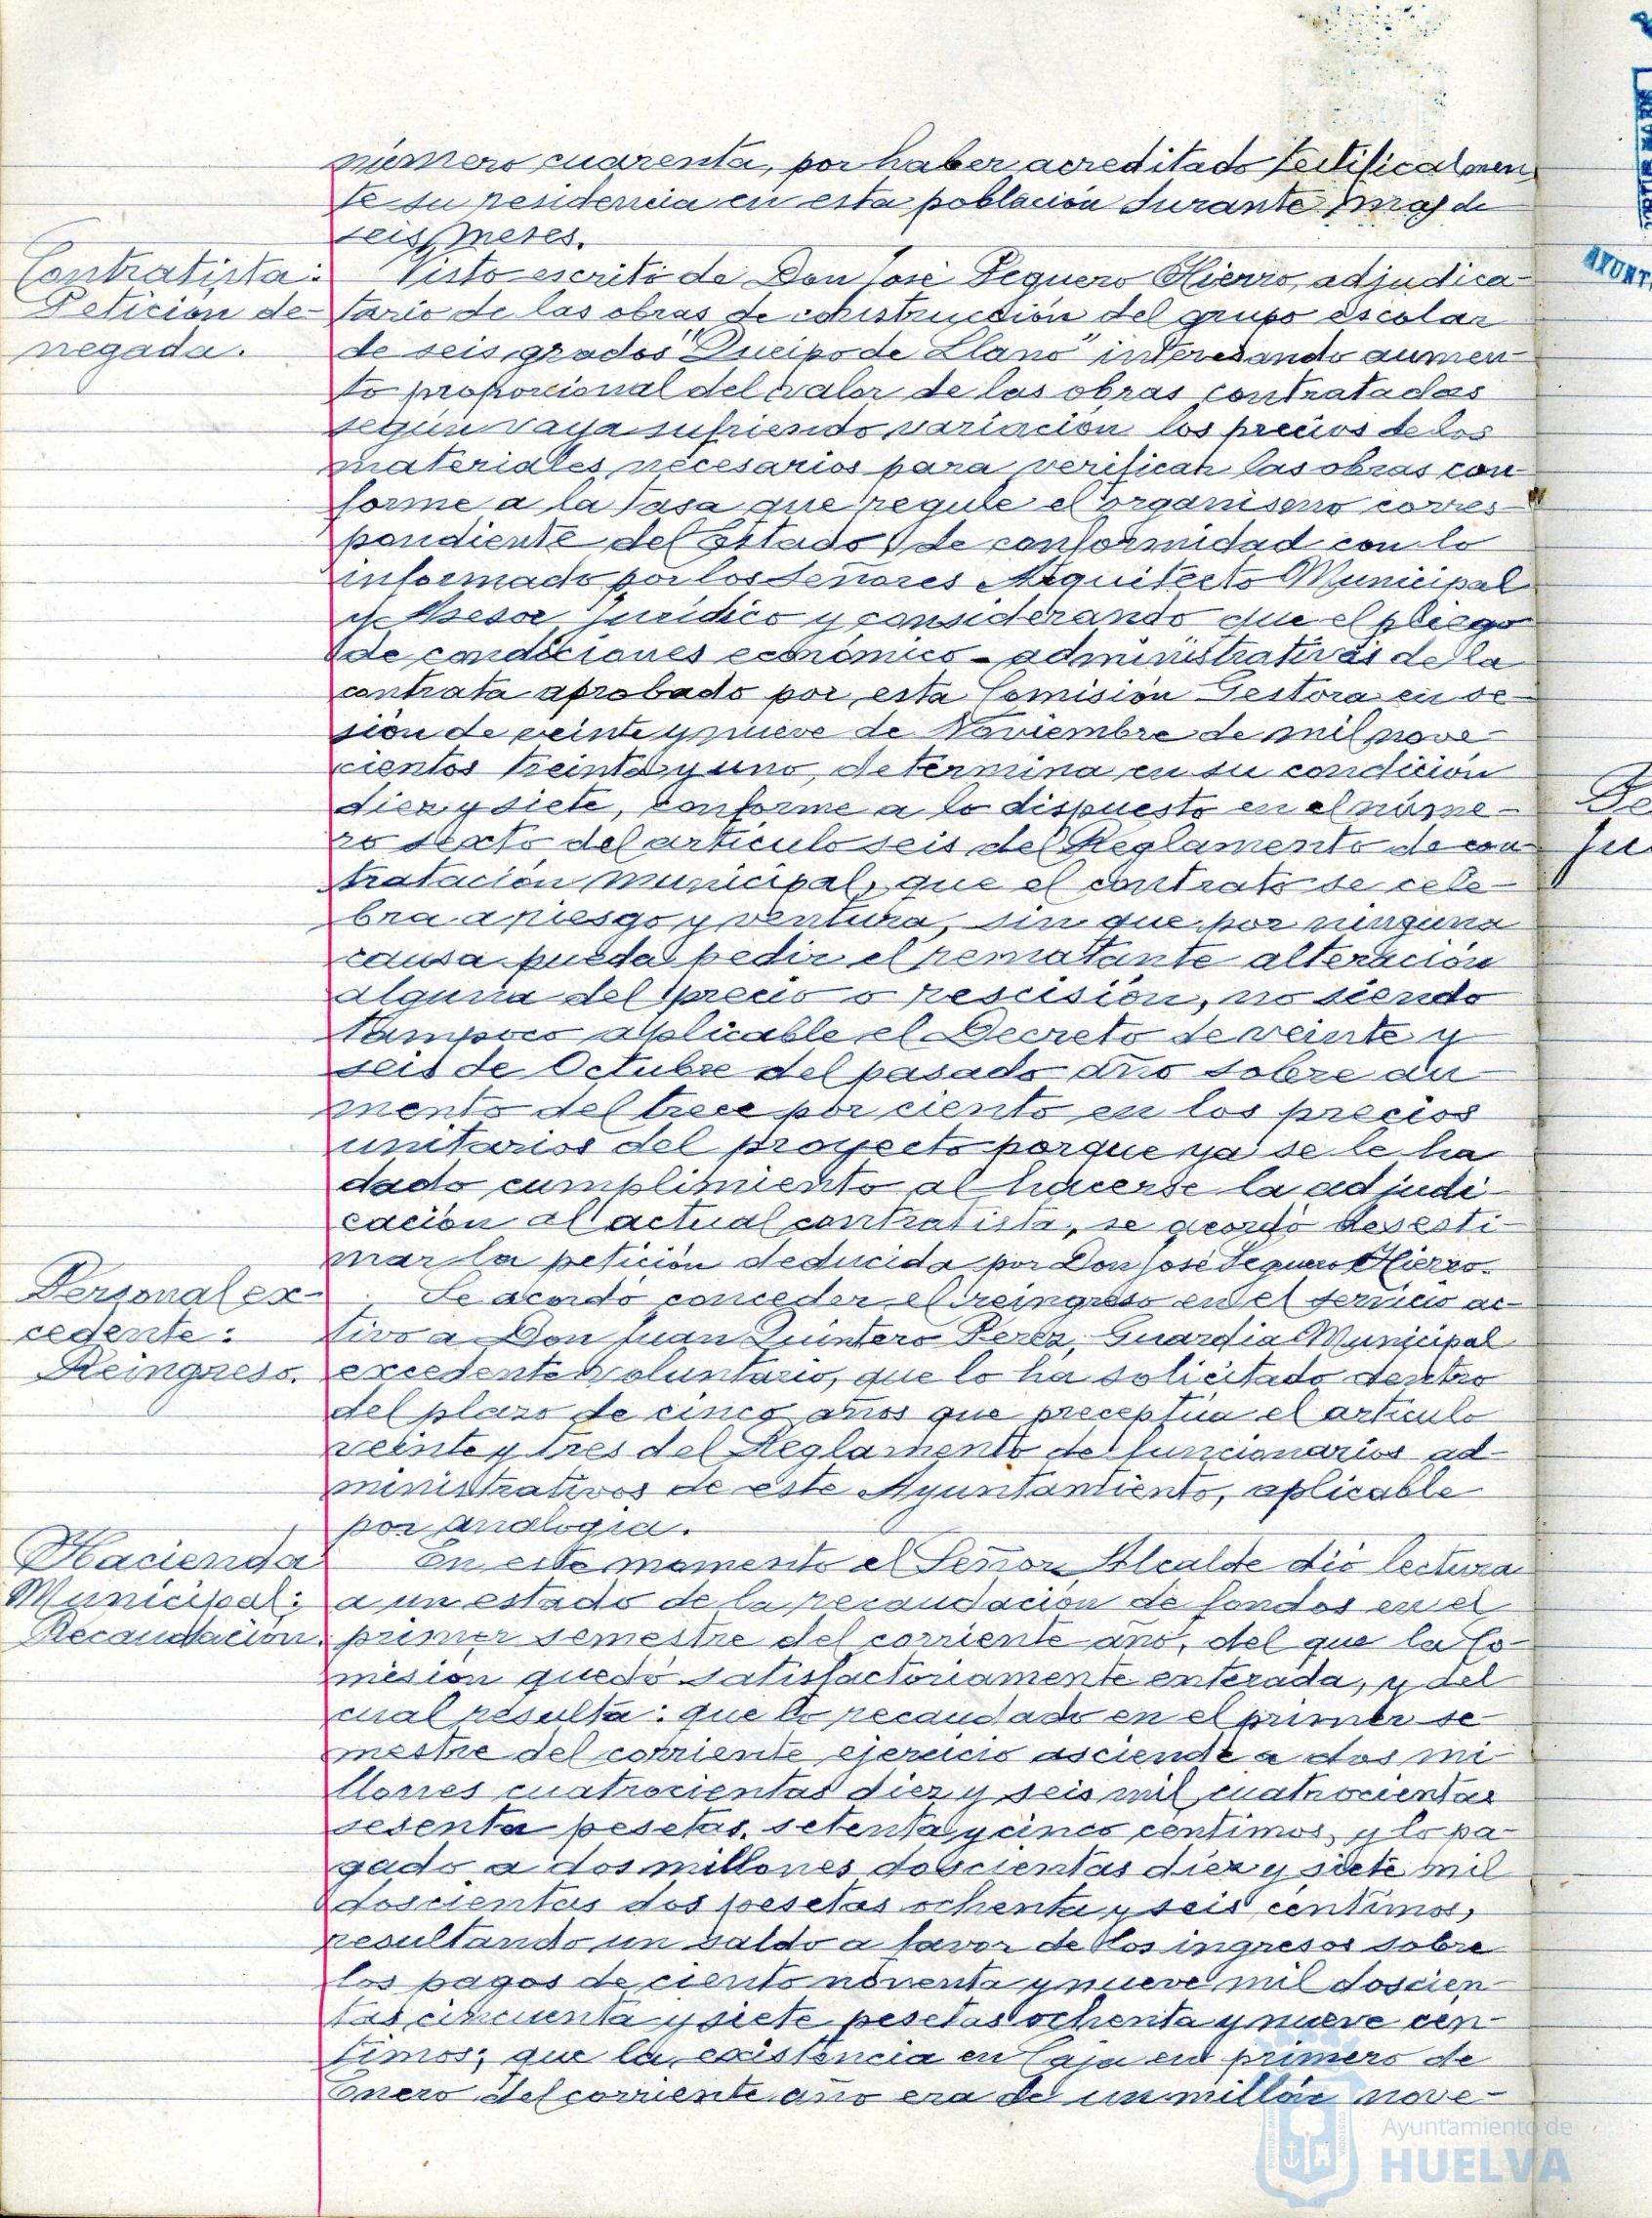 número cuarenta, por haber acreditado testificalmen-
te su residencia en esta población durante mas de
seis meses.
Contratista:
Petición de-
negada.
Visto escrito de Don José Peguero Hierro, adjudica-
tario de las obras de construcción del grupo escolar
de seis grados "Queipo de Llano" interesando aumen-
to proporcional del valor de las obras contratadas
según vaya sufriendo variación los precios de los
materiales necesarios para verificar las obras con-
forme a la tasa que regule el organismo corres-
pondiente del Estado, de conformidad con lo
informado por los Señores Arquitecto Municipal
y Asesor Jurídico y considerando que el pliego
de condiciones económico-administrativas de la
contrata aprobado por esta Comisión Gestora en se-
sión de veinte y nueve de Noviembre de mil nove-
cientos treinta y uno, determina en su condición
diez y siete, conforme a lo dispuesto en el núme-
ro sexto del artículo seis del Reglamento de con-
tratación municipal, que el contrato se cele-
bra a riesgo y ventura, sin que por ninguna
causa pueda pedir el rematante alteración
alguna del precio o rescisión, no siendo
tampoco aplicable el Decreto de veinte y
seis de Octubre del pasado año sobre au-
mento del trece por ciento en los precios
unitarios del proyecto porque ya se le ha
dado cumplimiento al hacerse la adjudi-
cación al actual contratista, se acordó desesti-
mar la petición deducida por Don José Peguero Hierro.
Personal ex-
cedente:
Reingreso.
Se acordó conceder el reingreso en el servicio ac-
tivo a Don Juan Quintero Perez, Guardia Municipal
excedente voluntario, que lo ha solicitado dentro
del plazo de cinco años que preceptúa el artículo
veinte y tres del Reglamento de funcionarios ad-
ministrativos de este Ayuntamiento, aplicable
por analogia.
Hacienda
Municipal:
Recaudación.
En este momento el Señor Alcalde dió lectura
a un estado de la recaudación de fondos en el
primer semestre del corriente año, del que la Co-
misión quedó satisfactoriamente enterada, y del
cual resulta: que lo recaudado en el primer se-
mestre del corriente ejercicio asciende a dos mi-
llones cuatrocientas diez y seis mil cuatrocientas
sesenta pesetas, setenta y cinco céntimos, y lo pa-
gado a dos millones doscientas diez y siete mil
doscientas dos pesetas ochenta y seis céntimos,
resultando un saldo a favor de los ingresos sobre
los pagos de ciento noventa y nueve mil doscien-
tas cincuenta y siete pesetas ochenta y nueve cén-
timos; que la existencia en Caja en primero de
Enero del corriente año era de un millón nove-
Ayuntamiento de
HUELVA